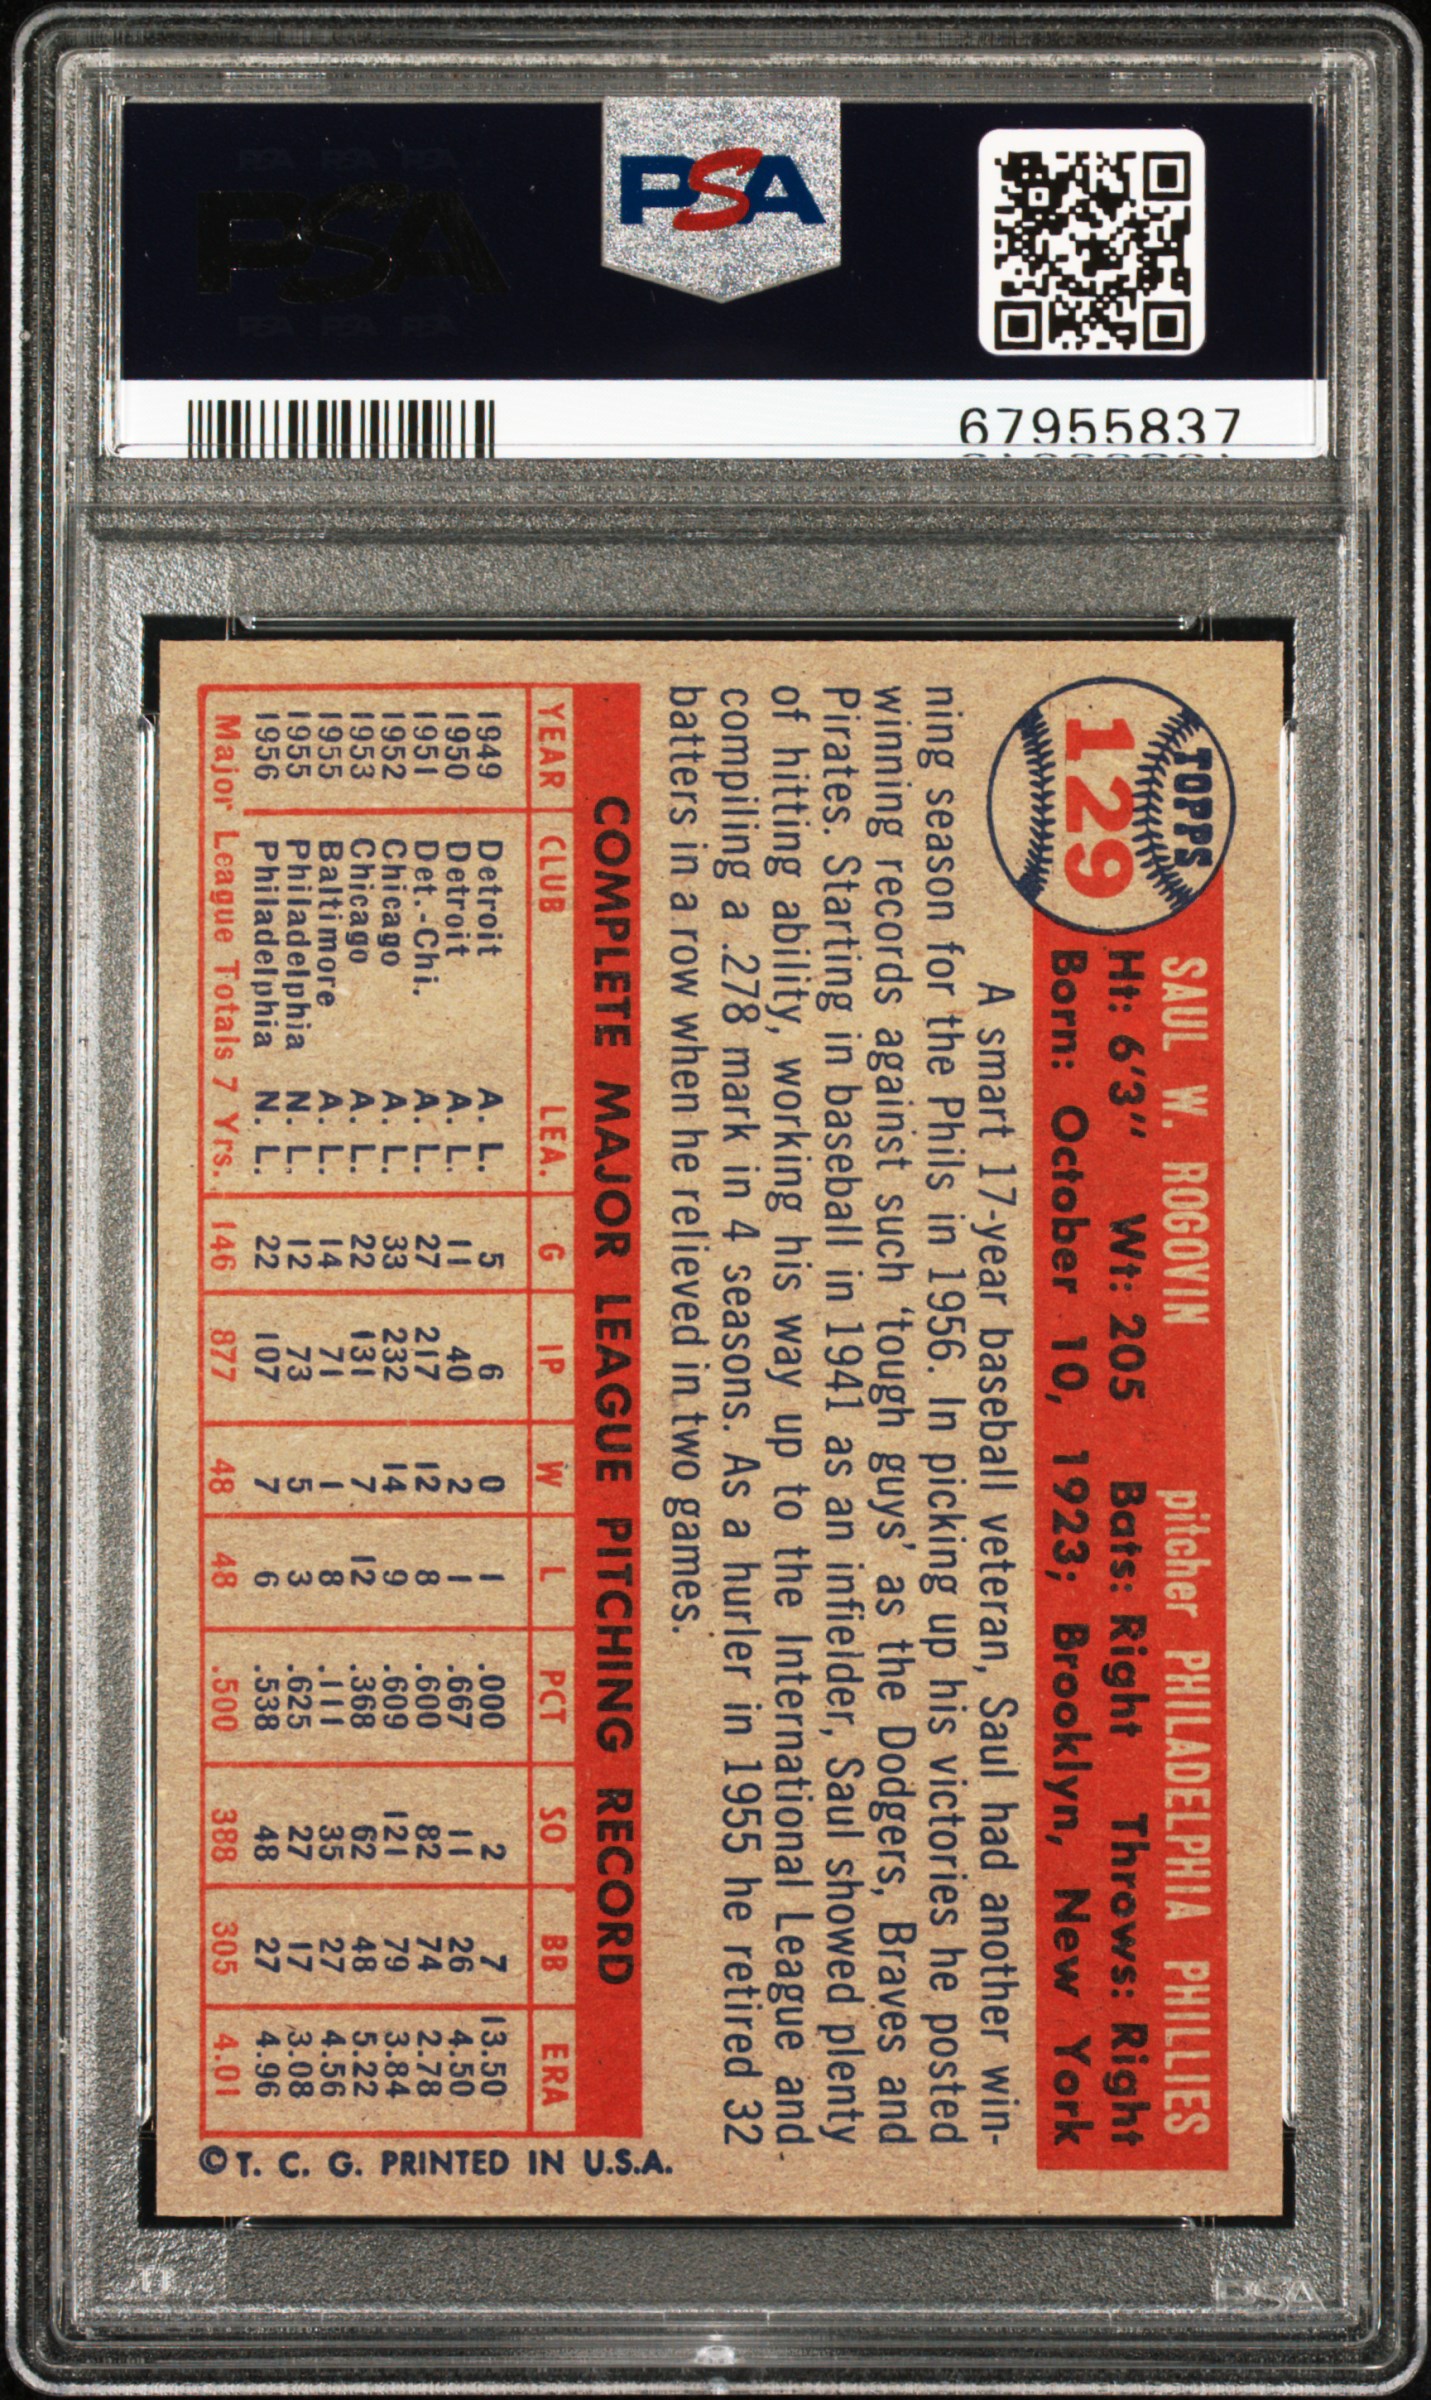 PSA PSA PSA
PSA
PSA PSA PSA
PSA
67955837
TOPPS
129
SAUL W. ROGOVIN pitcher PHILADELPHIA PHILLIES
Ht: 6'3" Wt: 205 Bats: Right Throws: Right
Born: October 10, 1923; Brooklyn, New York
A smart 17-year baseball veteran, Saul had another win-
ning season for the Phils in 1956. In picking up his victories he posted
winning records against such 'tough guys' as the Dodgers, Braves and
Pirates. Starting in baseball in 1941 as an infielder, Saul showed plenty
of hitting ability, working his way up to the International League and
compiling a .278 mark in 4 seasons. As a hurler in 1955 he retired 32
batters in a row when he relieved in two games.
COMPLETE MAJOR LEAGUE PITCHING RECORD
YEAR CLUB LEA. G IP W L PCT SO BB ERA
1949 Detroit A. L. 5 6 0 1 .000 2 7 13.50
1950 Detroit A. L. 11 40 2 1 .667 11 26 4.50
1951 Det.-Chi. A. L. 27 217 12 8 .600 82 74 2.78
1952 Chicago A. L. 33 232 14 9 .609 121 79 3.84
1953 Chicago A. L. 22 131 7 12 .368 62 48 5.22
1955 Baltimore A. L. 14 71 1 8 .111 35 27 4.56
1955 Philadelphia N. L. 12 73 5 3 .625 27 17 3.08
1956 Philadelphia N. L. 22 107 7 6 .538 48 27 4.96
Major League Totals 7 Yrs. 146 877 48 48 .500 388 305 4.01
©T. C. G. PRINTED IN U.S.A.
PSA